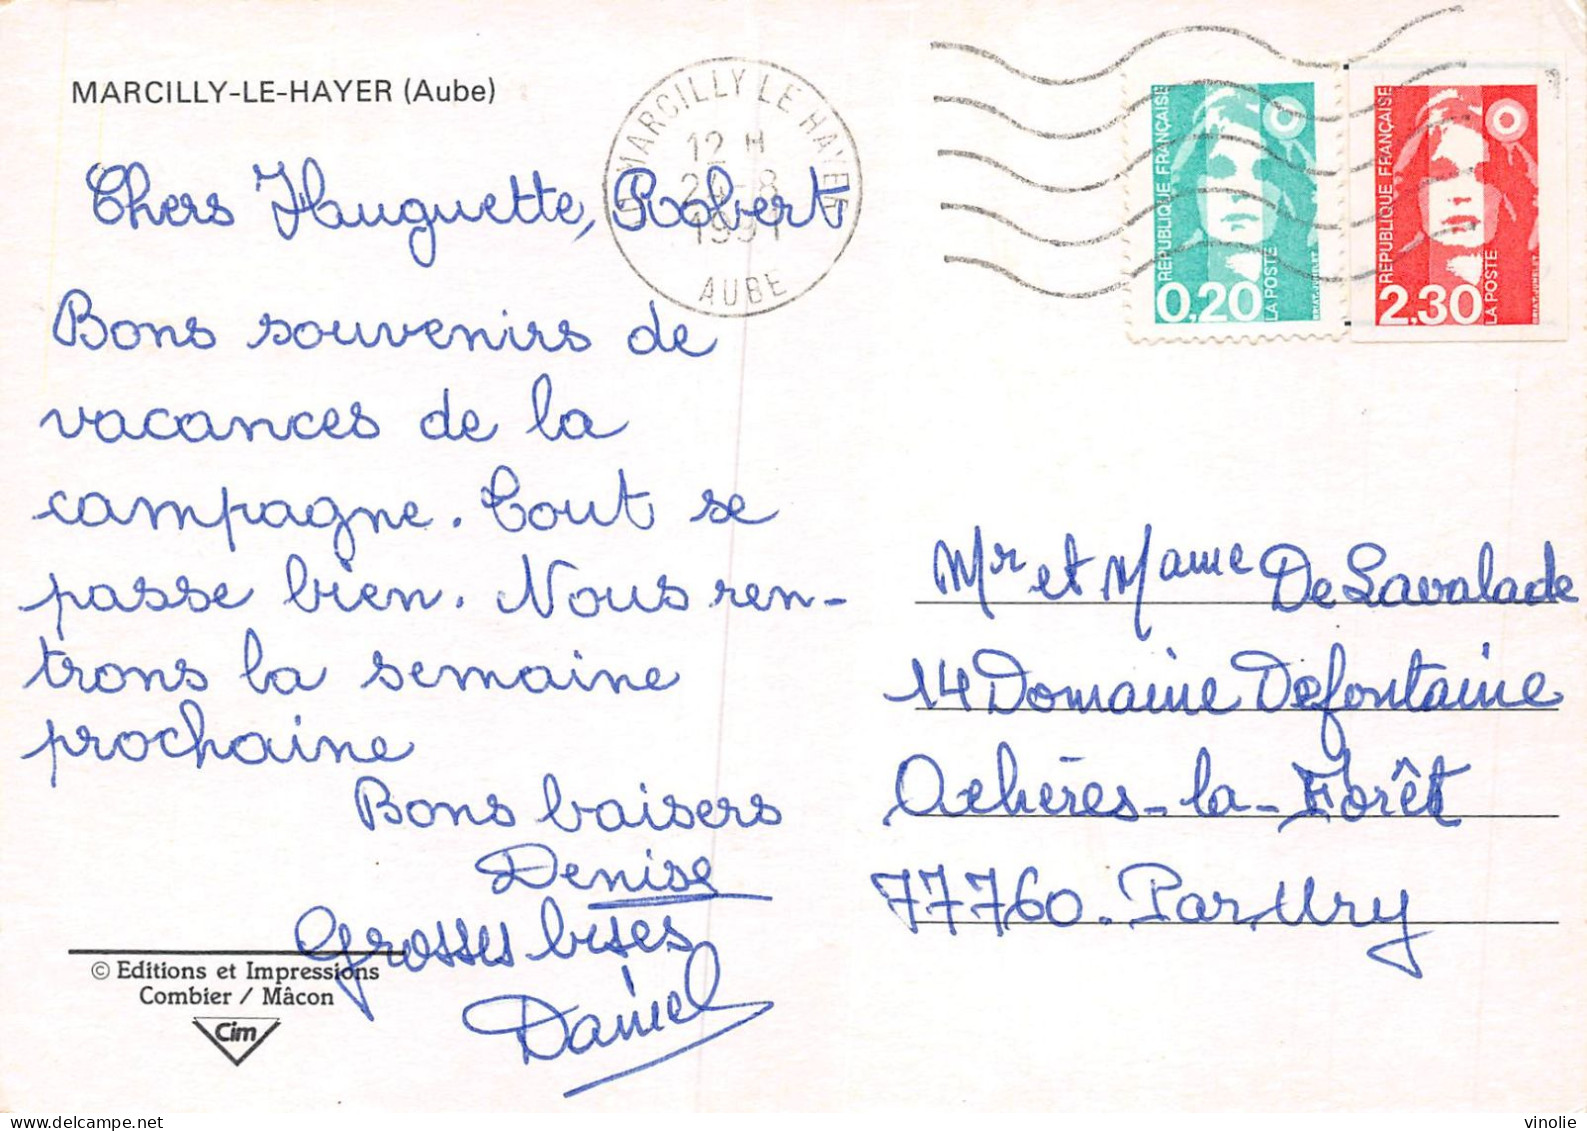 MARCILLY-LE-HAYER (Aube)
MARCILLY LE HAYER
12 H
1991
AUBE
RÉPUBLIQUE FRANÇAISE
0,20
LA POSTE
BRIAT-JUMELET
RÉPUBLIQUE FRANÇAISE
2,30
LA POSTE
BRIAT-JUMELET
Chers Huguette, Robert
Bons souvenirs de
vacances de la
campagne. Tout se
passe bien. Nous ren-
trons la semaine
prochaine
Bons baisers
Denise
Grosses bises
Daniel
© Editions et Impressions
Combier / Mâcon
Cim
Mr et Mame De Lavalade
14 Domaine Defontaine
Achères-la-Forêt
77760. Par Ury
vinolie